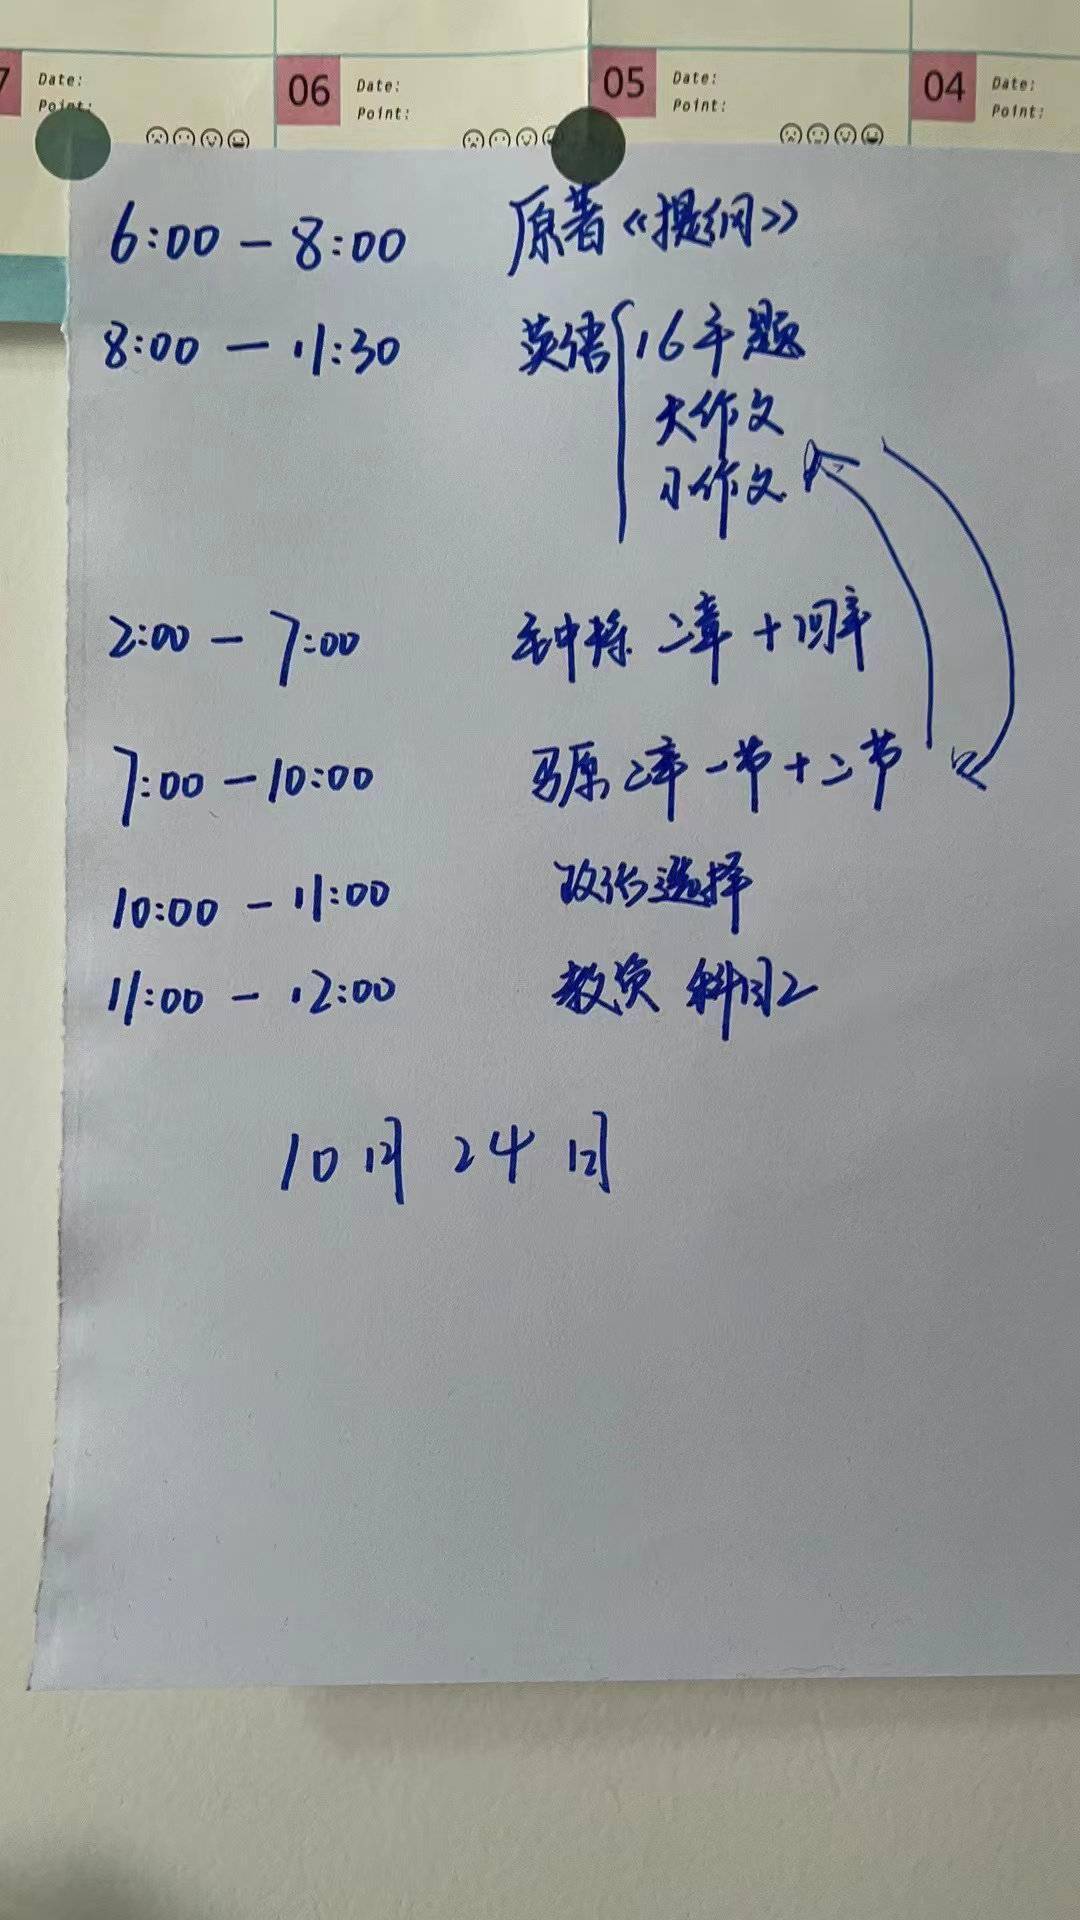 06 05 04
Date: Date: Date: Date:
Point: Point: Point: Point:
6:00-8:00 原著《提纲》
8:00-11:30 英语 16年题
大作文
小作文
2:00-7:00 毛中特 二章+四章
7:00-10:00 马原 二章一节+二节
10:00-11:00 政治选择
11:00-12:00 教资 科目2
10月24日